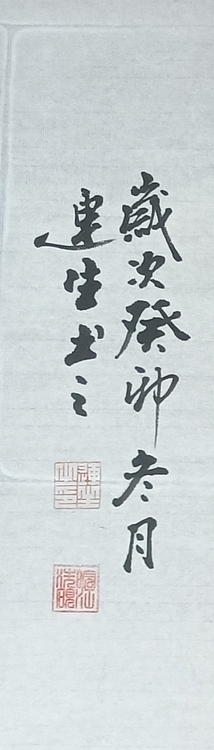 歲次癸卯冬月
連生书之